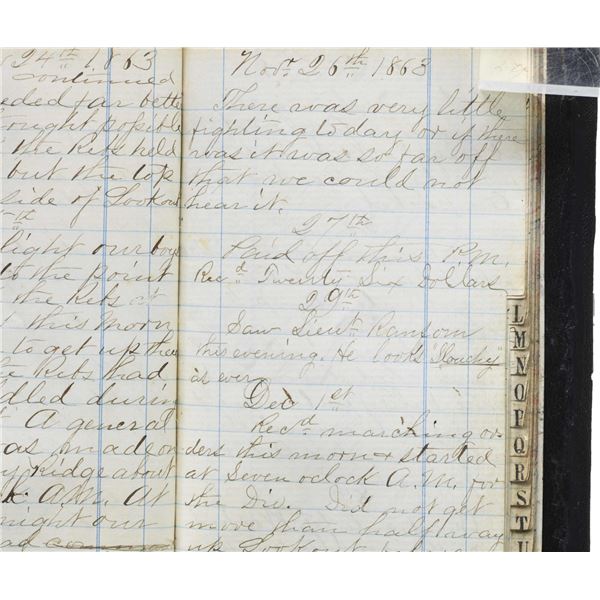 24th 1863
continued
ded far bette
ought possible
the Rebs held
but the top
side of Lookou
th
light our boys
to the point
the Rebs at
this morn
to get up thea
e Rebs had
dled durin
A general
as made on
y ridge about
k A.M. At
night our
ad
Novr 26th 1863
There was very little
fighting today or if there
was it was so far off
that we could not
hear it.
27th
Paid off this P.M.
Recd Twenty Six Dollars
29th
Saw Lieut Ransom
this evening. He looks "slouchy"
as ever
Dec 1st
Recd marching or
ders this morn & started
at Seven oclock A.M. for
the Div. Did not get
more than half away
up Lookout
L
M
N
O
P
Q
R
S
T
U